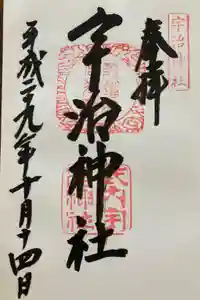 奉拝
宇治神社
宇治神社
平成二九年十月十四日